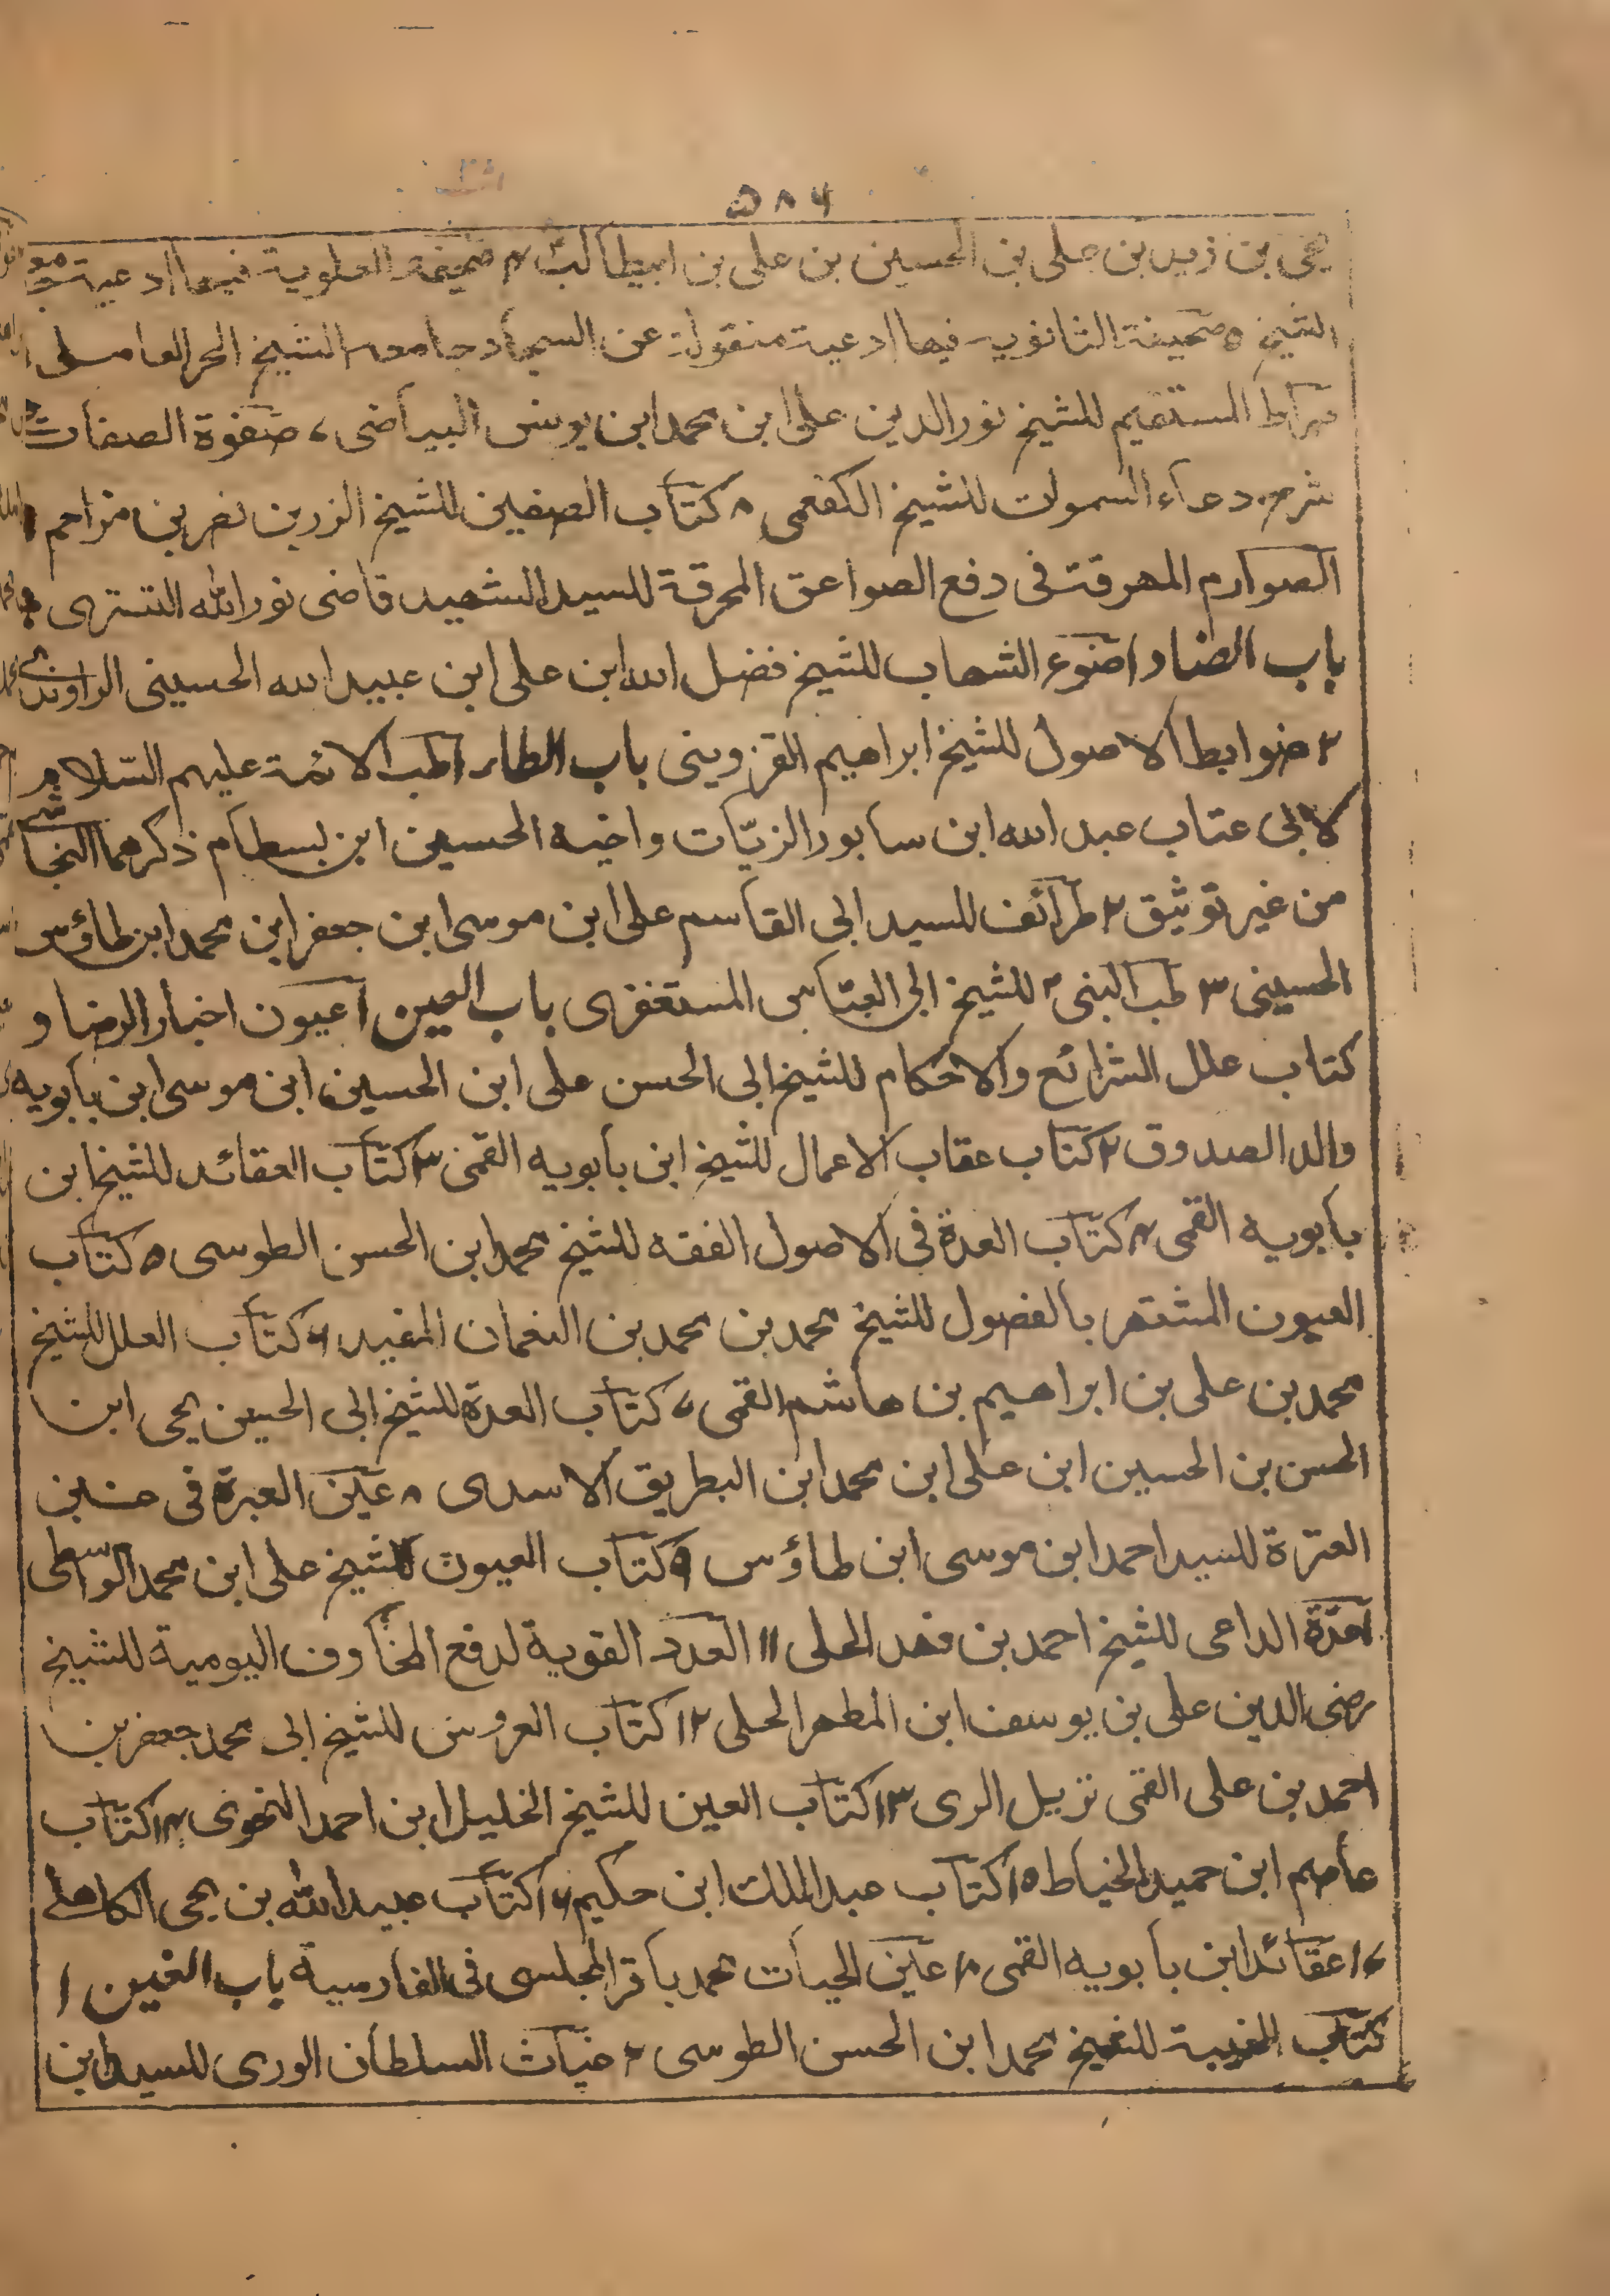 ٥٨٦
يحيى بن زيد بن على بن الحسين بن على بن ابيطالب ٤ صحيفة العلوية فيها ادعية
الشيخ ٥ صحيفة الثانوية فيها ادعية منقولة عن السجاد جامعه الشيخ الحر العاملى
صراط المستقيم للشيخ نور الدين على ابن محمد ابن يونس البياضى ٧ صفوة الصفات
شرح دعاء السموات للشيخ الكفعمى ٨ كتاب الصفين للشيخ الزربن نصر بن مزاحم
الصوارم المهرقة فى دفع الصواعق المحرقة للسيد الشهيد قاضى نور الله التسترى
باب الضاد ا ضوء الشهاب للشيخ فضل الله ابن على ابن عبيد الله الحسينى الراوندى
٢ ضوابط الاصول للشيخ ابراهيم القزوينى باب الطاء ا طب الائمة عليهم السّلام
لابى عتاب عبد الله ابن سابور الزيّات واخيه الحسين ابن بسطام ذكرهما النجاشى
من غير توثيق ٢ طرائف للسيد ابى القاسم على ابن موسى ابن جعفر ابن محمد ابن طاؤس
الحسينى ٣ طب النبى للشيخ ابى العبّاس المستغفرى باب العين ا عيون اخبار الرضا و
كتاب علل الشرائع والاحكام للشيخ ابى الحسن على ابن الحسين ابن موسى ابن بابويه
والد الصدوق ٢ كتاب عقاب الاعمال للشيخ ابن بابويه القمى ٣ كتاب العقائد للشيخ ابن
بابويه القمى ٤ كتاب العدة فى الاصول الفقه للشيخ محمد ابن الحسن الطوسى ٥ كتاب
العيون المشتهر بالفصول للشيخ محمد بن محمد بن النعمان المفيد ٦ كتاب العلل للشيخ
محمد بن على بن ابراهيم بن هاشم القمى ٧ كتاب العدة للشيخ ابى الحسين يحيى ابن
الحسن بن الحسين ابن على ابن محمد ابن البطريق الاسدى ٨ عين العبرة فى غبن
العترة للسيد احمد ابن موسى ابن طاؤس ٩ كتاب العيون للشيخ على ابن محمد الواسطى
عدّة الداعى للشيخ احمد بن فهد الحلى ١١ العدد القوية لدفع المخاوف اليومية للشيخ
رضى الدين على بن يوسف ابن المطهر الحلى ١٢ كتاب العروس للشيخ ابى محمد جعفر بن
احمد بن على القمى نزيل الرى ١٣ كتاب العين للشيخ الخليل ابن احمد النحوى ١٤ كتاب
عاصم ابن حميد الخياط ١٥ كتاب عبد الملك ابن حكيم ١٦ كتاب عبيد الله بن يحيى الكاهلى
١٧ عقائد ابن بابويه القمى ١٨ عين الحيات محمد باقر المجلسى فى الفارسية باب الغين ١
كتاب الغيبة للشيخ محمد ابن الحسن الطوسى ٢ غياث السلطان الورى للسيد ابن